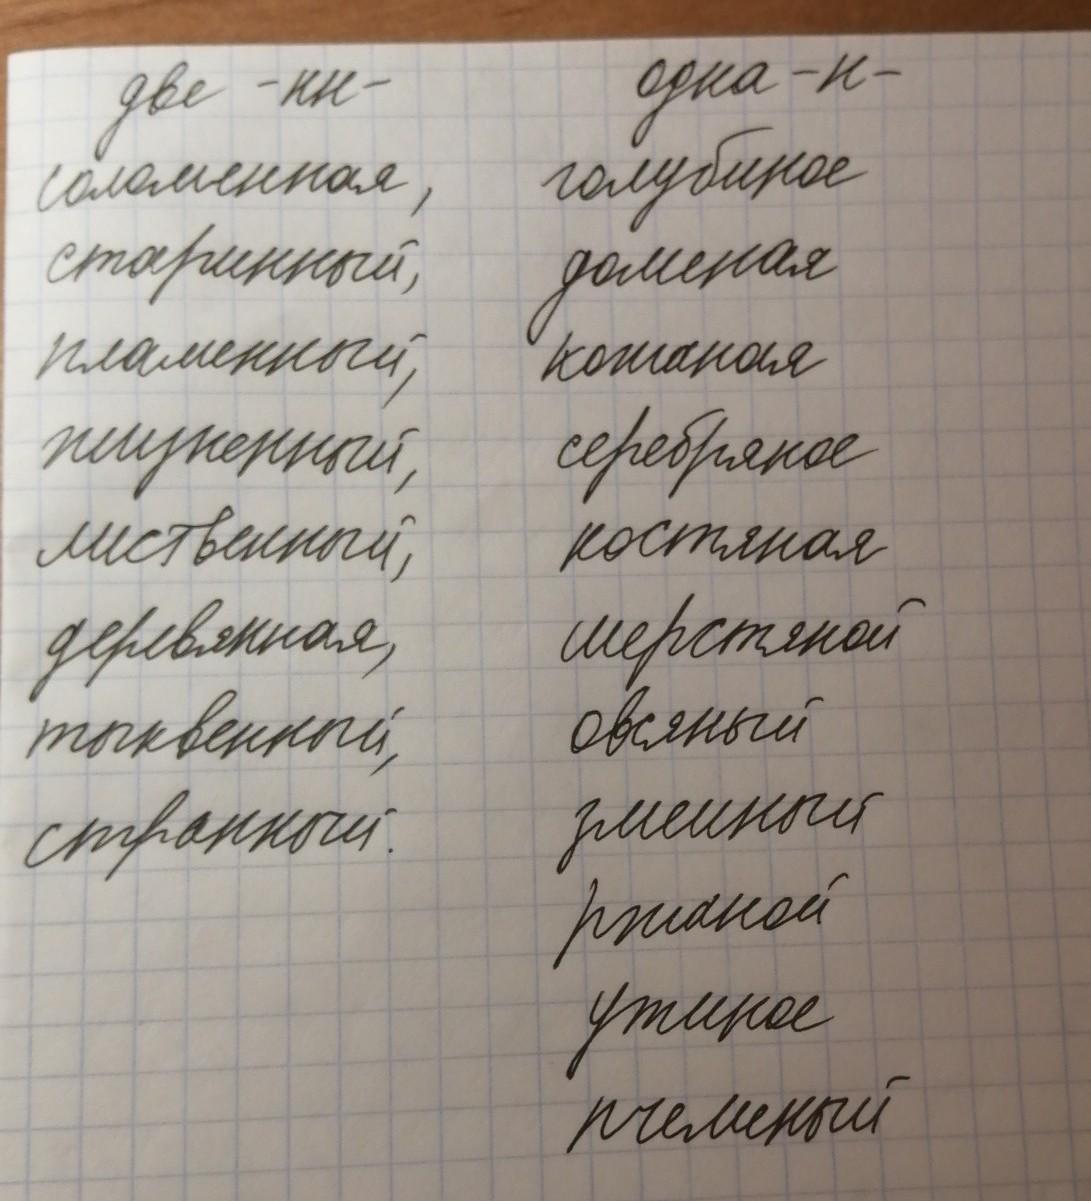 две -нн-
соломенная,
старинный,
пламенный,
лиственный,
деревянная,
тыквенный,
странный.
одна -н-
голубиное
доменая
кожаная
серебряное
костяная
шерстяной
овсяный
змеиный
ржаной
утиное
пчелиный